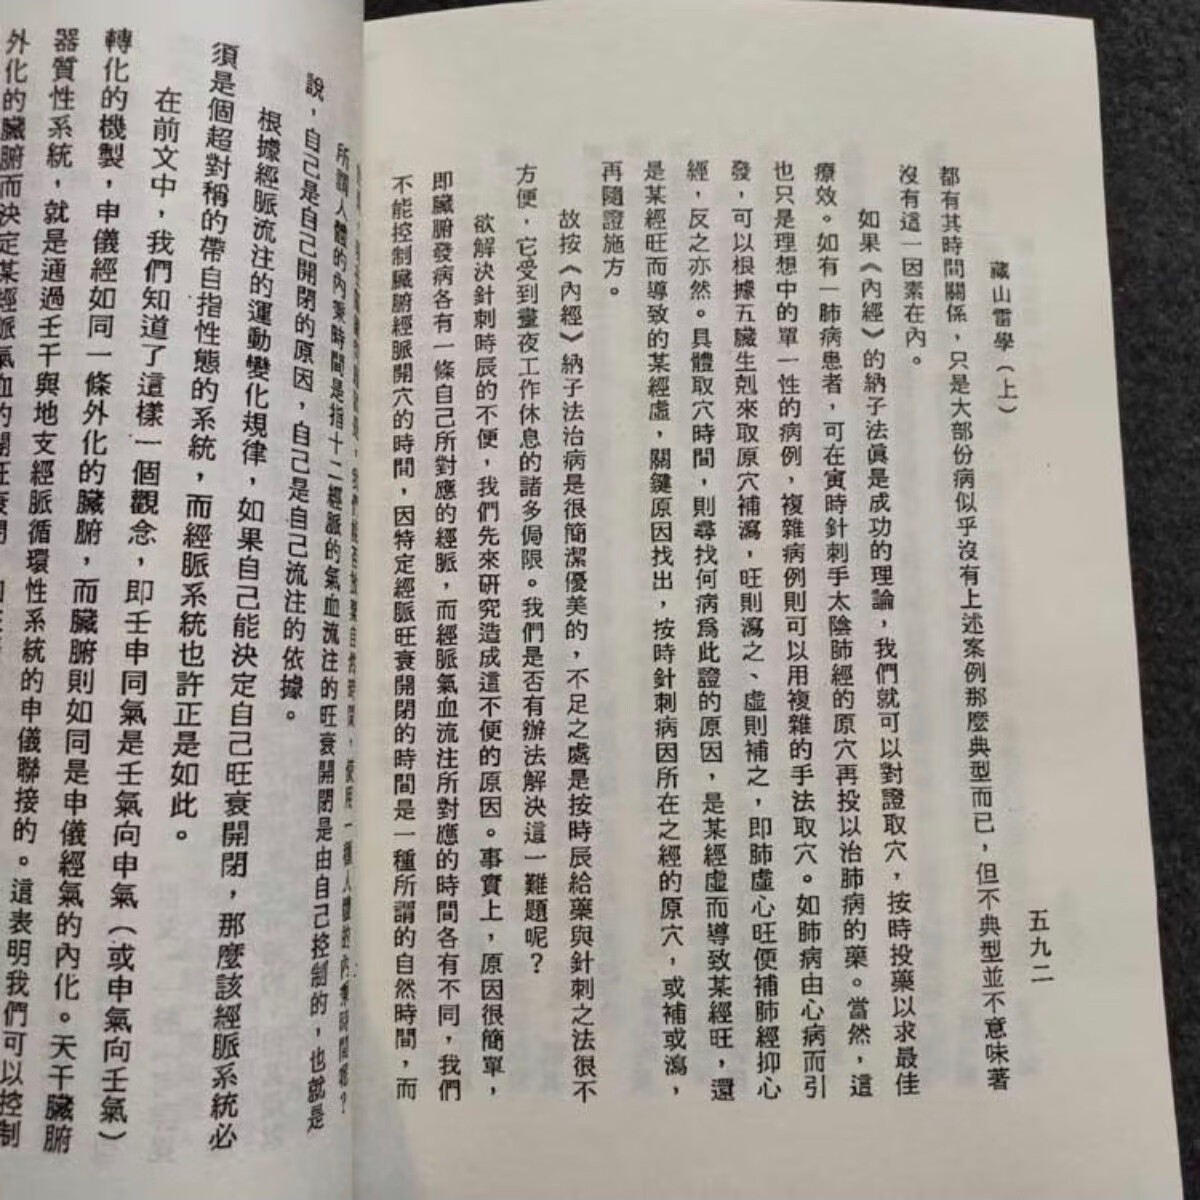 藏山雷學（上）
五九二
都有其時間關係，只是大部份病似乎沒有上述案例那麼典型而已，但不典型並不意味著
沒有這一因素在內。
如果《內經》的納子法眞是成功的理論，我們就可以對證取穴，按時投藥以求最佳
療效。如有一肺病患者，可在寅時針刺手太陰肺經的原穴再投以治肺病的藥。當然，這
也只是理想中的單一性的病例，複雜病例則可以用複雜的手法取穴。如肺病由心病而引
發，可以根據五臟生剋來取原穴補瀉，旺則瀉之、虛則補之，即肺虛心旺便補肺經抑心
經，反之亦然。具體取穴時間，則尋找何病爲此證的原因，是某經虛而導致某經旺，還
是某經旺而導致的某經虛，關鍵原因找出，按時針刺病因所在之經的原穴，或補或瀉，
再隨證施方。
故按《內經》納子法治病是很簡潔優美的，不足之處是按時辰給藥與針刺之法很不
方便，它受到晝夜工作休息的諸多侷限。我們是否有辦法解決這一難題呢？
欲解決針刺時辰的不便，我們先來研究造成這不便的原因。事實上，原因很簡單，
即臟腑發病各有一條自己所對應的經脈，而經脈氣血流注所對應的時間各有不同，我們
不能控制臟腑經脈開穴的時間，因特定經脈旺衰開閉的時間是一種所謂的自然時間，而
使用一種人體的內秉時間呢？
所謂人體的內秉時間是指十二經脈的氣血流注的旺衰開閉是由自己控制的，也就是
說，自己是自己開閉的原因，自己是自己流注的依據。
根據經脈流注的運動變化規律，如果自己能決定自己旺衰開閉，那麼該經脈系統必
須是個超對稱的帶自指性態的系統，而經脈系統也許正是如此。
在前文中，我們知道了這樣一個觀念，即壬申同氣是壬氣向申氣（或申氣向壬氣）
轉化的機製，申儀經如同一條外化的臟腑，而臟腑則如同是申儀經氣的內化。天干臟腑
器質性系統，就是通過壬干與地支經脈循環性系統的申儀聯接的。這表明我們可以控制
外化的臟腑而決定某經脈氣血的開旺衰閉